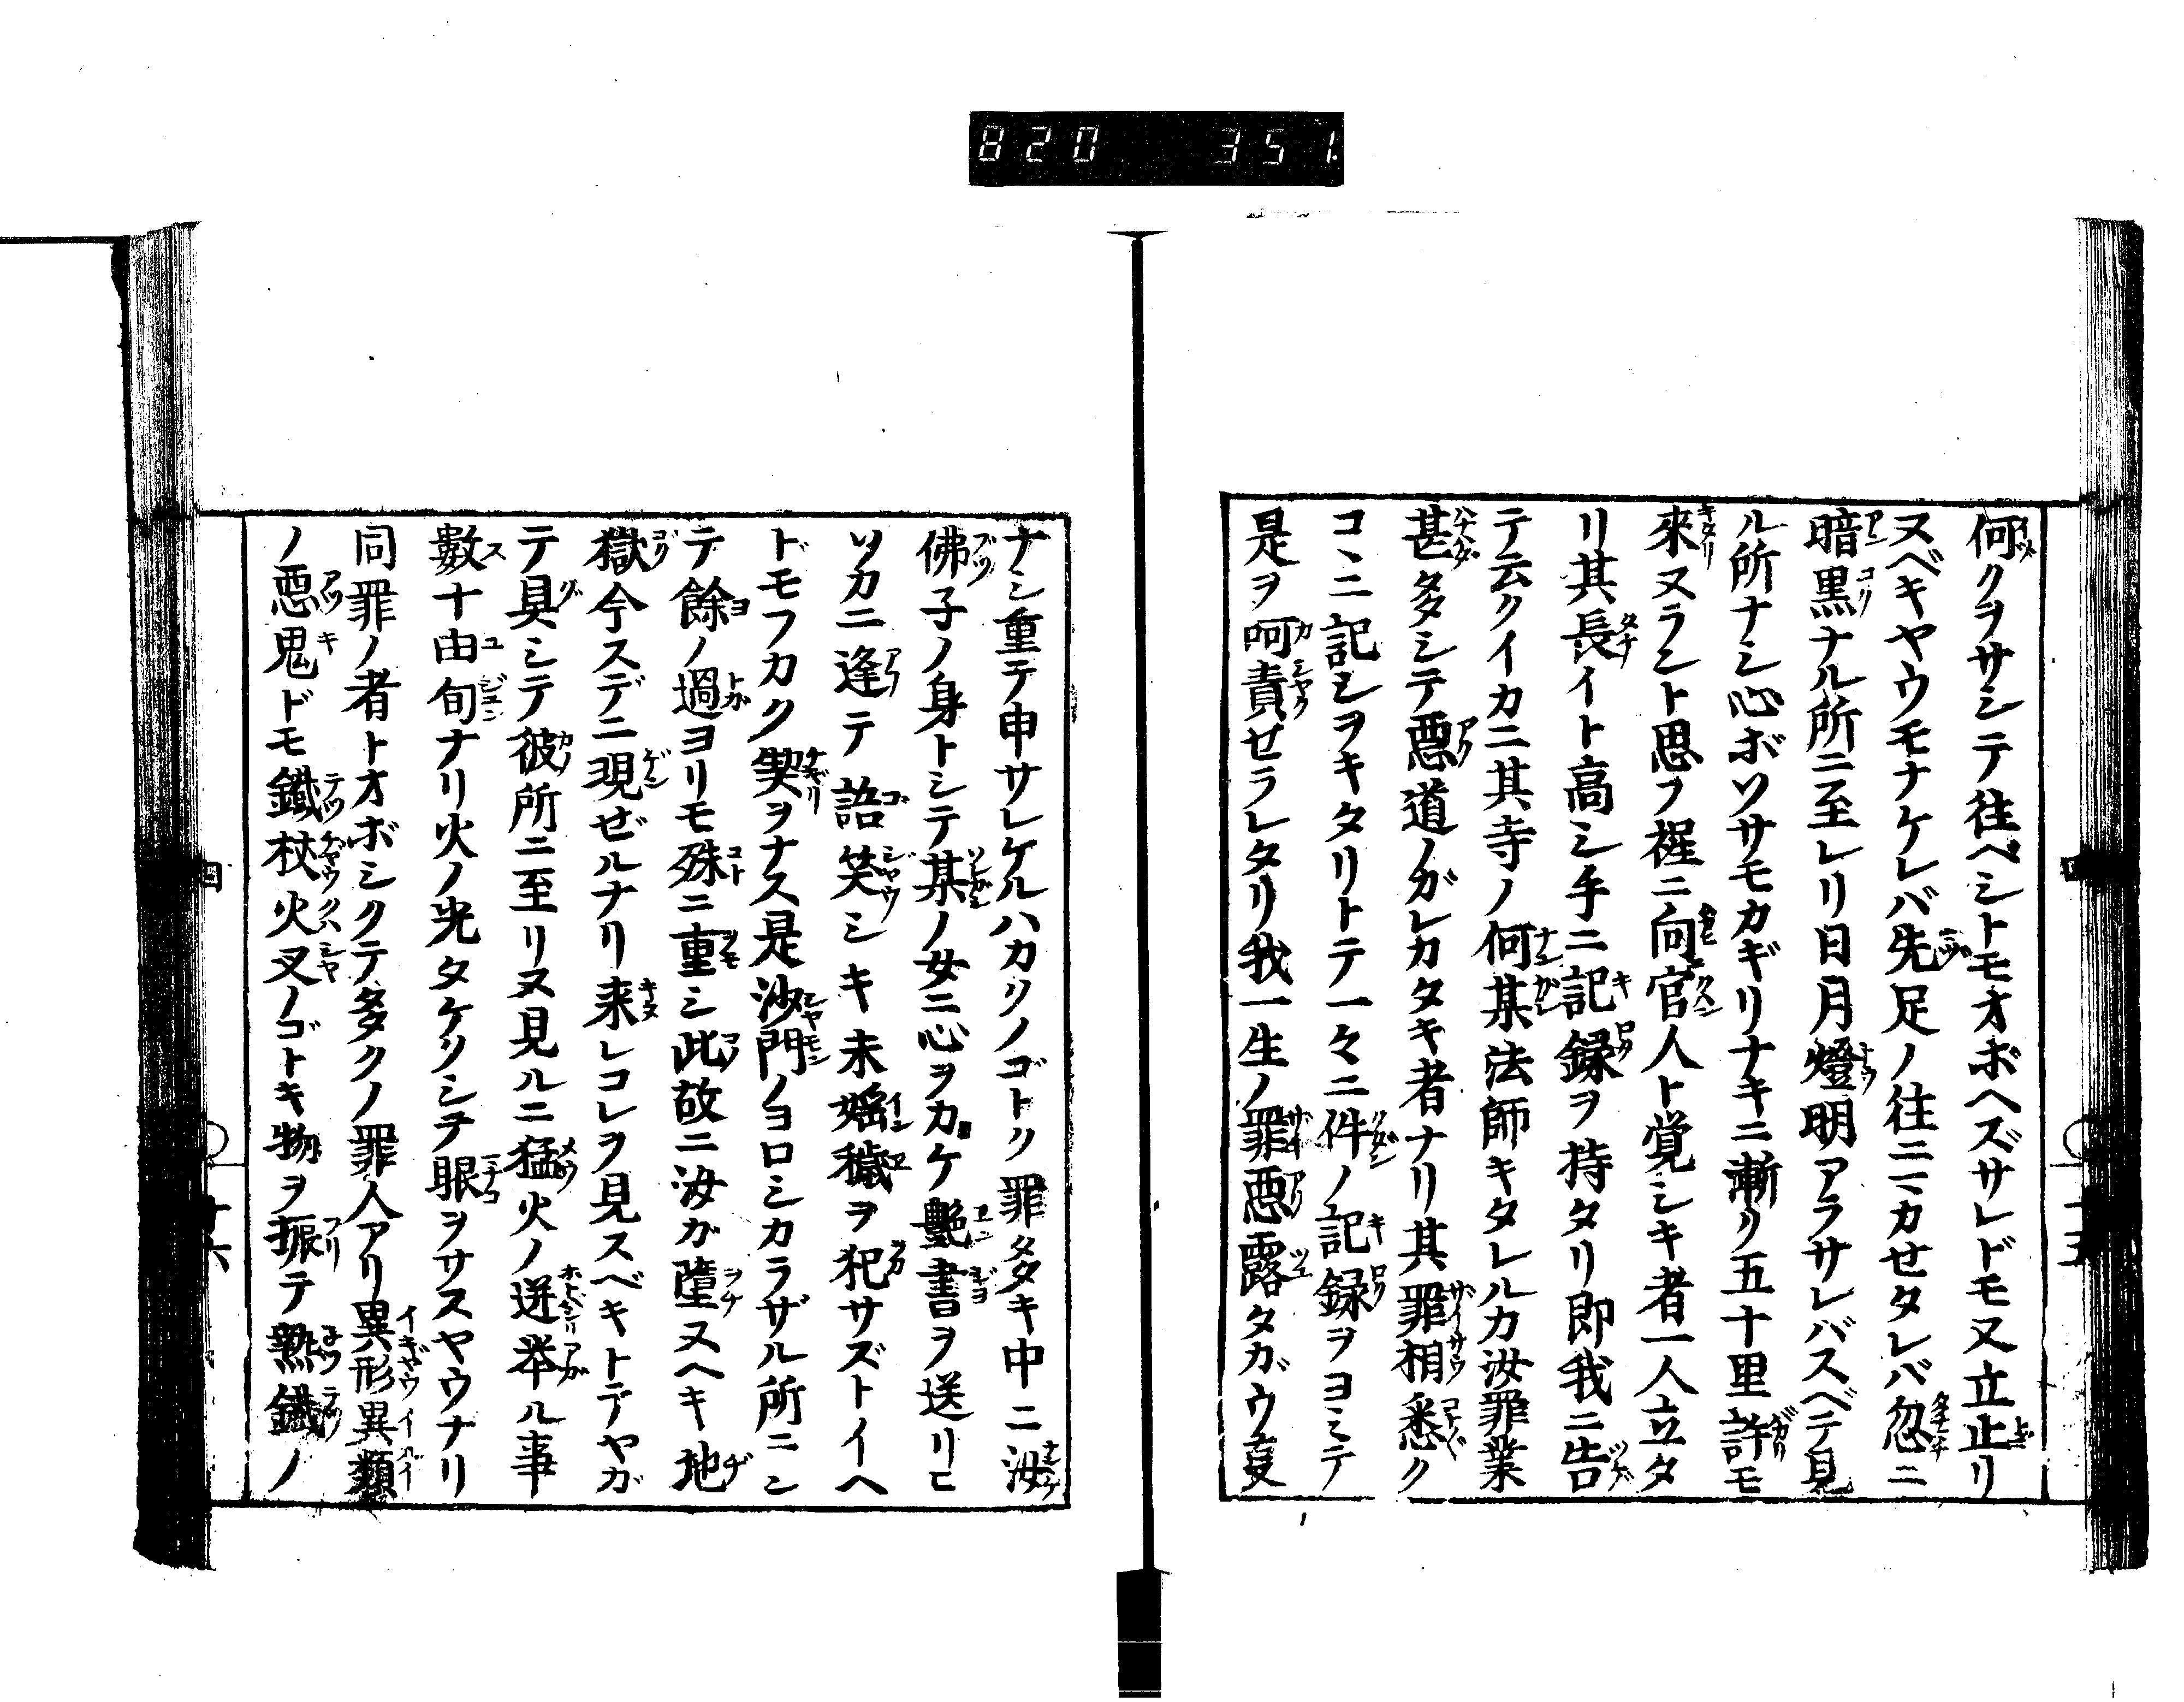 820 351.
何クヲサシテ往ベシトモオボヘズサレドモ又立止リ
ヌベキヤウモナケレバ先足ノ往ニマカセタレバ忽ニ
暗黒ナル所ニ至レリ日月燈明アラサレバスベテ見
ル所ナシ心ボソサモカギリナキニ漸ク五十里許モ
來ヌラント思フ程ニ向ニ官人ト覚シキ者一人立タ
リ其長イト高シ手ニ記録ヲ持タリ即我ニ告
テ云クイカニ其寺ノ何某法師キタレルカ汝罪業
甚多シテ悪道ノガレカタキ者ナリ其罪相悉ク
コヽニ記シヲキタリトテ一々ニ件ノ記録ヲヨミテ
是ヲ呵責ぜラレタリ我一生ノ罪悪露タガウ叓
ナシ重テ申サレケルハカクノゴトク罪多キ中ニ汝
佛子ノ身トシテ某ノ女ニ心ヲカケ艶書ヲ送リヒ
ソカニ逢テ語笑シキ未婬穢ヲ犯サズトイヘ
ドモフカク契ヲナス是沙門ノヨロシカラザル所ニシ
テ餘ノ過ヨリモ殊ニ重シ此故ニ汝ガ墮ヌヘキ地
獄今スデニ現ぜルナリ来レコレヲ見スベキトテヤガ
テ具シテ彼所ニ至リヌ見ルニ猛火ノ迸挙ル事
數十由旬ナリ火ノ光タケクシテ眼ヲサスヤウナリ
同罪ノ者トオボシクテ多クノ罪人アリ異形異類
ノ悪鬼ドモ鐵杖火叉ノゴトキ物ヲ振テ熱鐵ノ
四
十五
四
十六